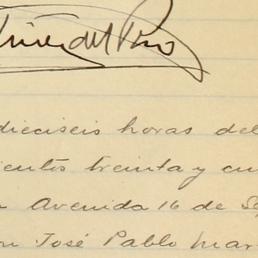 del Pino
dieciseis horas del
cientos treinta y cu
Avenida 16 de Se
José Pablo Mar